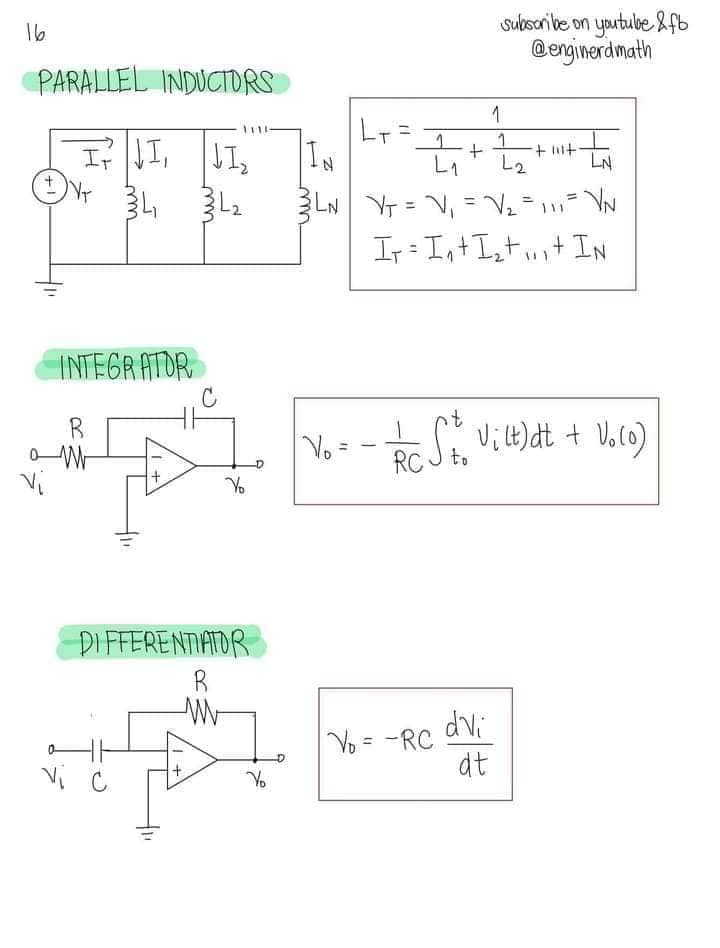 16
subscribe on youtube & fb
@enginerdmath
PARALLEL INDUCTORS
I_T ↓I_1 ↓I_2 I_N
+ - V_T L_1 L_2 L_N
L_T = 1 / (1/L_1 + 1/L_2 + ... + 1/L_N)
V_T = V_1 = V_2 = ... = V_N
I_T = I_1 + I_2 + ... + I_N
INTEGRATOR
C
R
-
+
V_i
V_o
V_o = - 1/RC ∫_{t_o}^{t} V_i(t)dt + V_o(0)
DIFFERENTIATOR
R
-
+
V_i C
V_o
V_o = -RC dV_i/dt